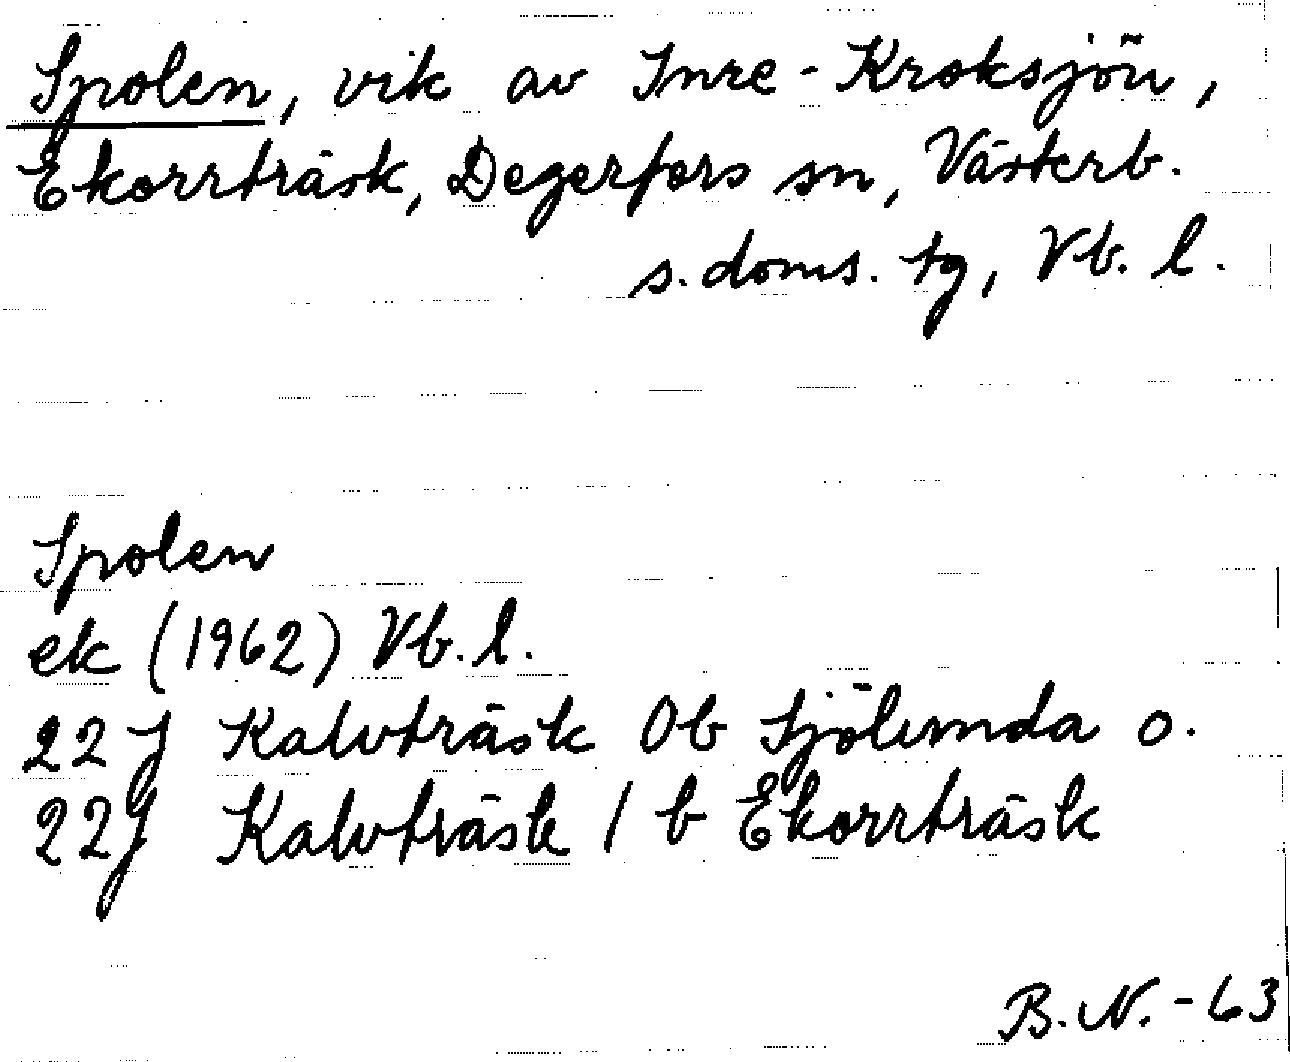 Spolen, vik av Inre-Kroksjön,
Ekorrträsk, Degerfors sn, Västerb.
s. doms. tg, Vb. l.
Spolen
ek (1962) Vb. l.
22 J Kalvträsk 0b Sjölunda o.
22J Kalvträsk 1 b Ekorrträsk
B.N.-63